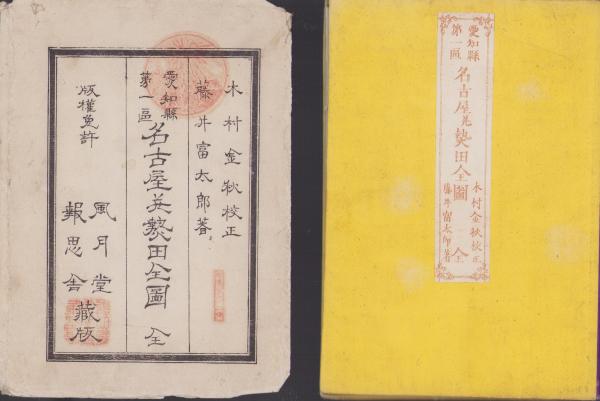 木村金秋校正
藤井富太郎著
愛知縣
第一區
名古屋并𤍠田全圖 全
版權免許
風月堂
報思舎
藏版
愛知縣
第一區
名古屋并𤍠田全圖
木村金秋校正
藤井富太郎著
全